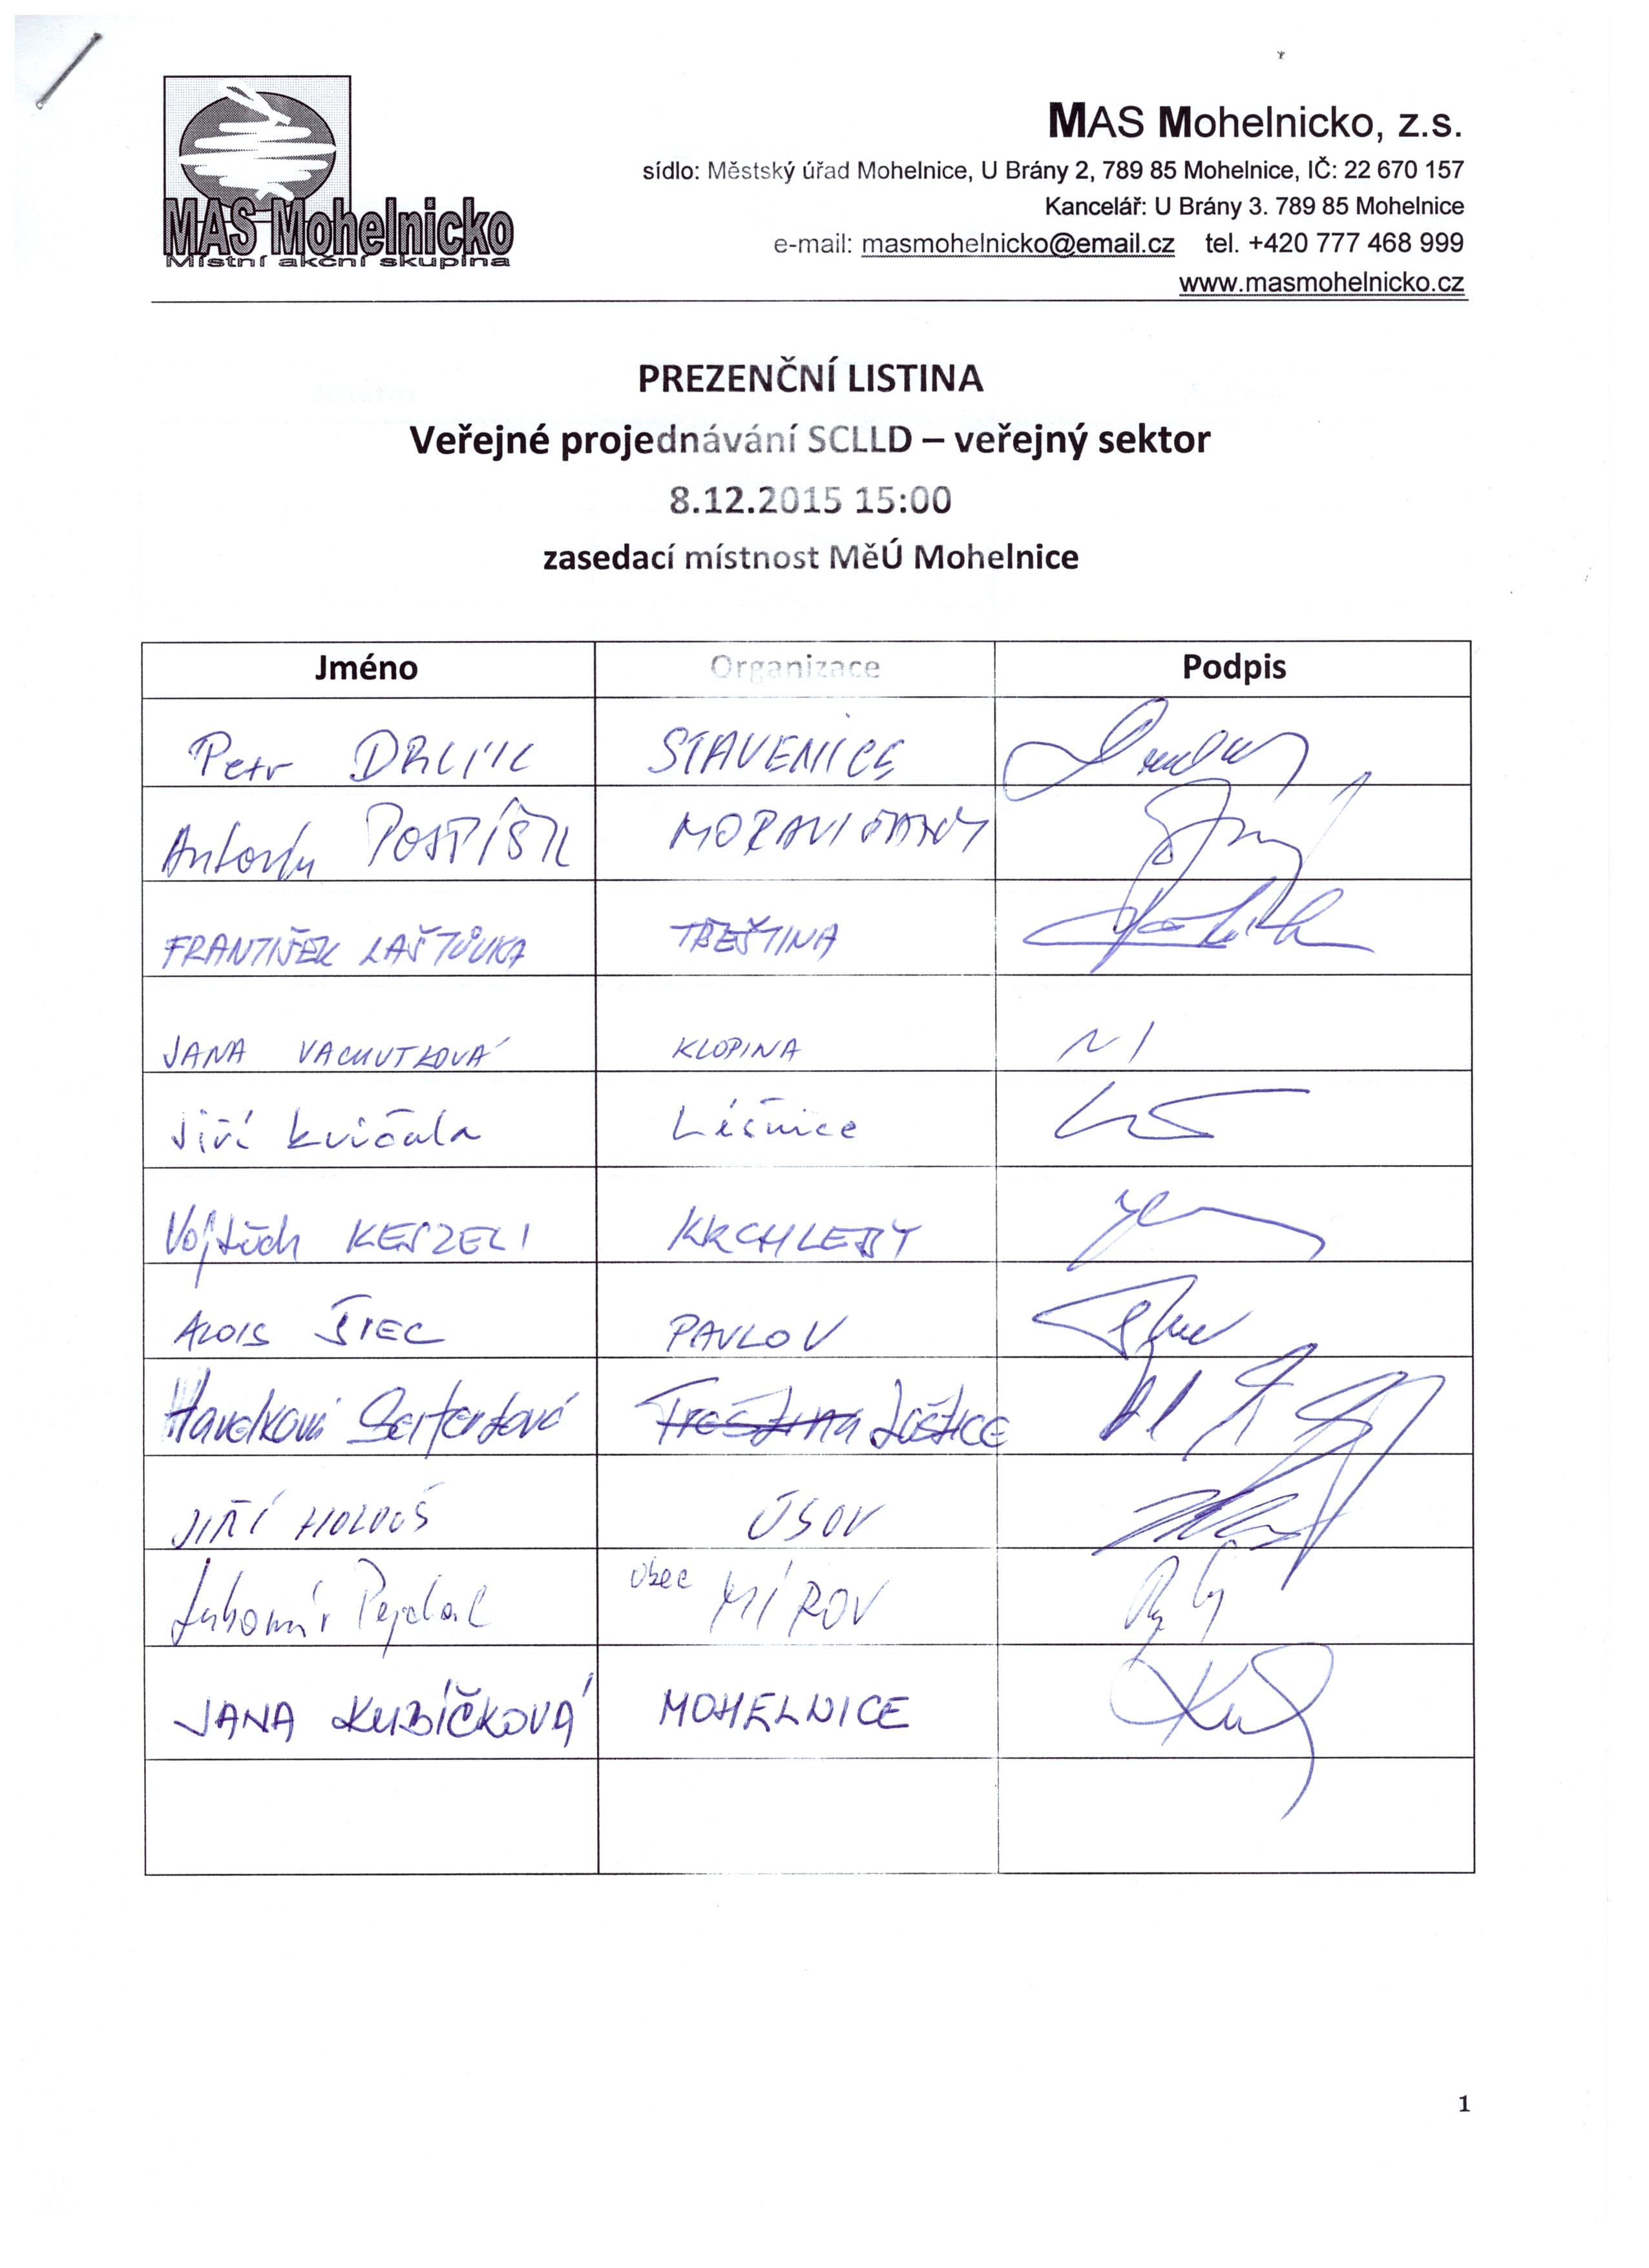 MAS Mohelnicko
Místní akční skupina
MAS Mohelnicko, z.s.
sídlo: Městský úřad Mohelnice, U Brány 2, 789 85 Mohelnice, IČ: 22 670 157
Kancelář: U Brány 3. 789 85 Mohelnice
e-mail: masmohelnicko@email.cz tel. +420 777 468 999
www.masmohelnicko.cz
PREZENČNÍ LISTINA
Veřejné projednávání SCLLD – veřejný sektor
8.12.2015 15:00
zasedací místnost MěÚ Mohelnice
Jméno Organizace Podpis
Petr DRLÍK STAVENICE
Antonín POSPÍŠIL MORAVIČANY
FRANTIŠEK LAŠTŮVKA TŘEŠTINA
JANA VACHUTKOVÁ KLOPINA
Jiří Kvíčala Léšnice
Vojtěch KESZELI KRCHLEBY
ALOIS PAVLOV
Havelková Seifertová Treština LOŠTICE
JIŘÍ HOLOUŠ ÚSOV
Lubomír obec MÍROV
JANA KUBÍČKOVÁ MOHELNICE
1